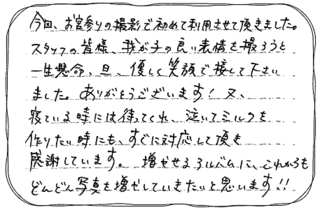 今回、お宮参りの撮影で初めて利用させて頂きました。
スタッフの皆様、我が子の良い表情を撮ろうと
一生懸命、且、優しく笑顔で接して下さい
ました。ありがとうございます！又、
寝ている時には待ってくれ、泣いてミルクを
作りたい時にも、すぐに対応して頂き
感謝しています。増やせるアルバムに、これからも
どんどん写真を増やしていきたいと思います!!